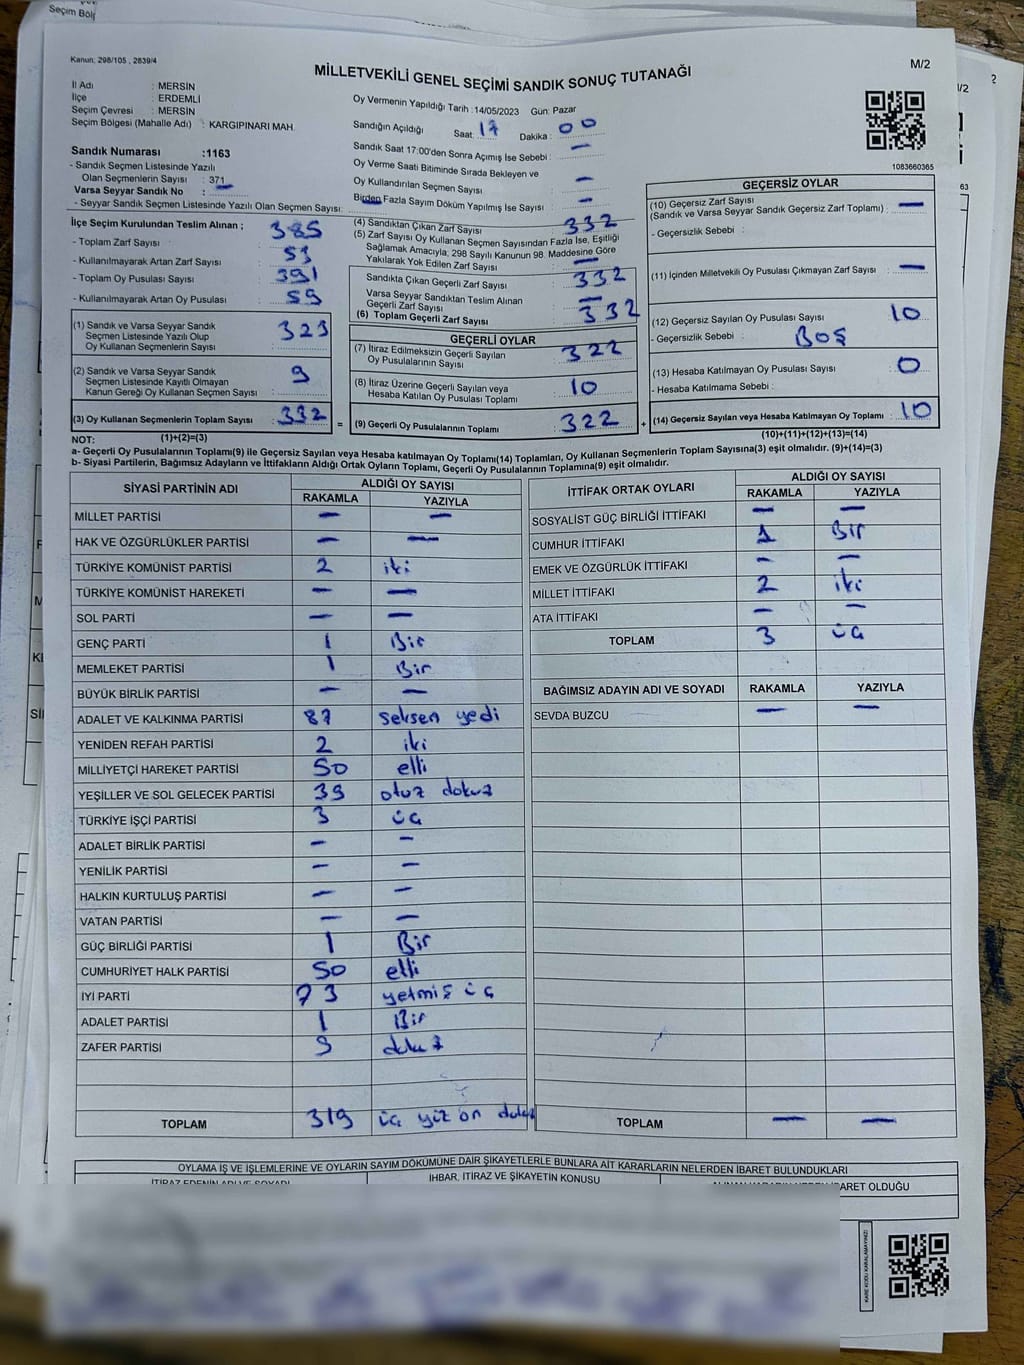 Seçim Böl
Kanun: 298/105 , 2839/4
MİLLETVEKİLİ GENEL SEÇİMİ SANDIK SONUÇ TUTANAĞI
M/2
İl Adı : MERSİN
İlçe : ERDEMLİ
Seçim Çevresi : MERSİN
Seçim Bölgesi (Mahalle Adı) : KARGIPINARI MAH.
Sandık Numarası :1163
- Sandık Seçmen Listesinde Yazılı
Olan Seçmenlerin Sayısı : 371
Varsa Seyyar Sandık No : —
- Seyyar Sandık Seçmen Listesinde Yazılı Olan Seçmen Sayısı: —
Oy Vermenin Yapıldığı Tarih :14/05/2023 Gün: Pazar
Sandığın Açıldığı Saat: 17 Dakika : 00
Sandık Saat 17:00'den Sonra Açımış İse Sebebi : —
Oy Verme Saati Bitiminde Sırada Bekleyen ve
Oy Kullandırılan Seçmen Sayısı : —
Birden Fazla Sayım Döküm Yapılmış İse Sayısı : —
1083660365
İlçe Seçim Kurulundan Teslim Alınan ;
- Toplam Zarf Sayısı : 385
- Kullanılmayarak Artan Zarf Sayısı : 53
- Toplam Oy Pusulası Sayısı : 391
- Kullanılmayarak Artan Oy Pusulası : 59
(1) Sandık ve Varsa Seyyar Sandık
Seçmen Listesinde Yazılı Olup
Oy Kullanan Seçmenlerin Sayısı : 323
(2) Sandık ve Varsa Seyyar Sandık
Seçmen Listesinde Kayıtlı Olmayan
Kanun Gereği Oy Kullanan Seçmen Sayısı : 9
(3) Oy Kullanan Seçmenlerin Toplam Sayısı : 332
(4) Sandıktan Çıkan Zarf Sayısı : 332
(5) Zarf Sayısı Oy Kullanan Seçmen Sayısından Fazla İse, Eşitliği
Sağlamak Amacıyla, 298 Sayılı Kanunun 98. Maddesine Göre
Yakılarak Yok Edilen Zarf Sayısı : —
Sandıkta Çıkan Geçerli Zarf Sayısı : 332
Varsa Seyyar Sandıktan Teslim Alınan
Geçerli Zarf Sayısı : —
(6) Toplam Geçerli Zarf Sayısı : 332
GEÇERLİ OYLAR
(7) İtiraz Edilmeksizin Geçerli Sayılan
Oy Pusulalarının Sayısı : 322
(8) İtiraz Üzerine Geçerli Sayılan veya
Hesaba Katılan Oy Pusulası Toplamı : 10
= (9) Geçerli Oy Pusulalarının Toplamı : 322
GEÇERSİZ OYLAR
(10) Geçersiz Zarf Sayısı
(Sandık ve Varsa Seyyar Sandık Geçersiz Zarf Toplamı) : —
- Geçersizlik Sebebi :
(11) İçinden Milletvekili Oy Pusulası Çıkmayan Zarf Sayısı : —
(12) Geçersiz Sayılan Oy Pusulası Sayısı : 10
- Geçersizlik Sebebi : BOŞ
(13) Hesaba Katılmayan Oy Pusulası Sayısı : 0
- Hesaba Katılmama Sebebi :
+ (14) Geçersiz Sayılan veya Hesaba Katılmayan Oy Toplamı : 10
NOT: (1)+(2)=(3) (10)+(11)+(12)+(13)=(14)
a- Geçerli Oy Pusulalarının Toplamı(9) ile Geçersiz Sayılan veya Hesaba katılmayan Oy Toplamı(14) Toplamları, Oy Kullanan Seçmenlerin Toplam Sayısına(3) eşit olmalıdır. (9)+(14)=(3)
b- Siyasi Partilerin, Bağımsız Adayların ve İttifakların Aldığı Ortak Oyların Toplamı, Geçerli Oy Pusulalarının Toplamına(9) eşit olmalıdır.
SİYASİ PARTİNİN ADI ALDIĞI OY SAYISI
RAKAMLA YAZIYLA
MİLLET PARTİSİ — —
HAK VE ÖZGÜRLÜKLER PARTİSİ — —
TÜRKİYE KOMÜNİST PARTİSİ 2 iki
TÜRKİYE KOMÜNİST HAREKETİ — —
SOL PARTİ — —
GENÇ PARTİ 1 Bir
MEMLEKET PARTİSİ 1 Bir
BÜYÜK BİRLİK PARTİSİ — —
ADALET VE KALKINMA PARTİSİ 87 seksen yedi
YENİDEN REFAH PARTİSİ 2 iki
MİLLİYETÇİ HAREKET PARTİSİ 50 elli
YEŞİLLER VE SOL GELECEK PARTİSİ 39 otuz dokuz
TÜRKİYE İŞÇİ PARTİSİ 3 üç
ADALET BİRLİK PARTİSİ — —
YENİLİK PARTİSİ — —
HALKIN KURTULUŞ PARTİSİ — —
VATAN PARTİSİ — —
GÜÇ BİRLİĞİ PARTİSİ 1 Bir
CUMHURİYET HALK PARTİSİ 50 elli
İYİ PARTİ 73 yetmiş üç
ADALET PARTİSİ 1 Bir
ZAFER PARTİSİ 9 dokuz
TOPLAM 319 üç yüz on dokuz
İTTİFAK ORTAK OYLARI ALDIĞI OY SAYISI
RAKAMLA YAZIYLA
SOSYALİST GÜÇ BİRLİĞİ İTTİFAKI — —
CUMHUR İTTİFAKI 1 Bir
EMEK VE ÖZGÜRLÜK İTTİFAKI — —
MİLLET İTTİFAKI 2 iki
ATA İTTİFAKI — —
TOPLAM 3 üç
BAĞIMSIZ ADAYIN ADI VE SOYADI RAKAMLA YAZIYLA
SEVDA BUZCU — —
TOPLAM — —
OYLAMA İŞ VE İŞLEMLERİNE VE OYLARIN SAYIM DÖKÜMÜNE DAİR ŞİKAYETLERLE BUNLARA AİT KARARLARIN NELERDEN İBARET BULUNDUKLARI
İTİRAZ EDENİN ADI VE SOYADI İHBAR, İTİRAZ VE ŞİKAYETİN KONUSU İBARET OLDUĞU
KARE KODU KARALAMAYINIZ!